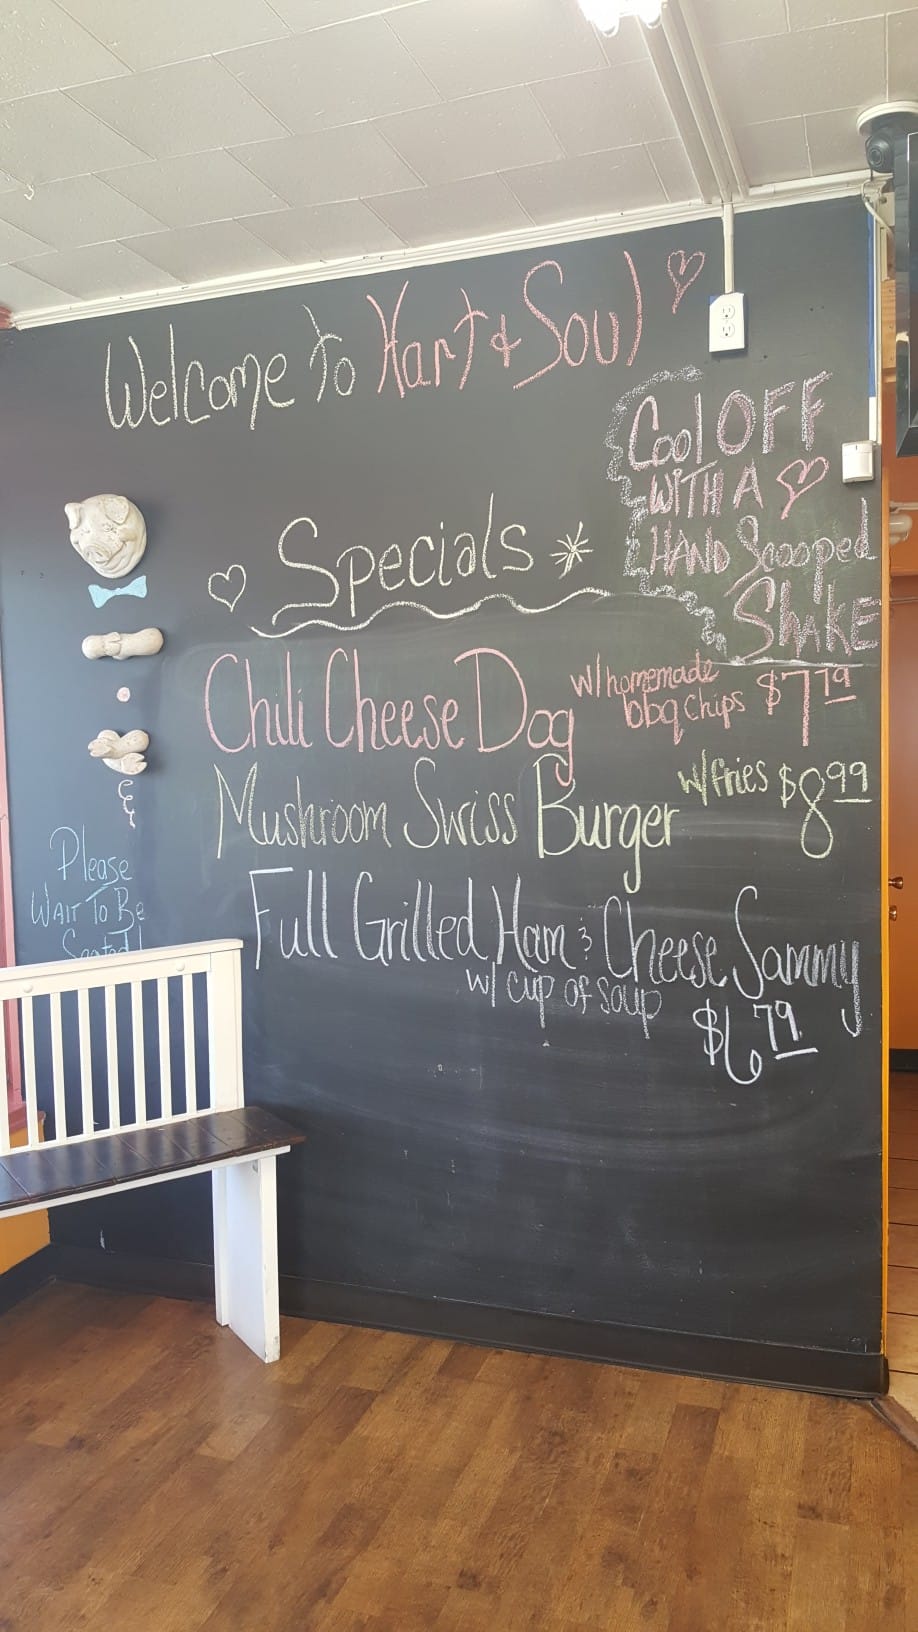 Welcome To Hart & Soul
Cool OFF
WITH A
HAND Scooped
SHAKE
Specials
Chili Cheese Dog w/homemade bbq chips $7.19
Mushroom Swiss Burger w/fries $8.99
Full Grilled Ham & Cheese Sammy
w/ cup of soup
$6.79
Please
WAIT To Be
Seated!